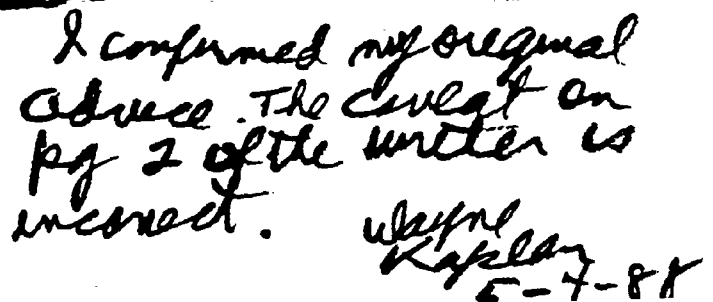 I confirmed my original
advice. The caveat on
pg 2 of the written is
incorrect.
Wayne
Kaplan
5-4-88